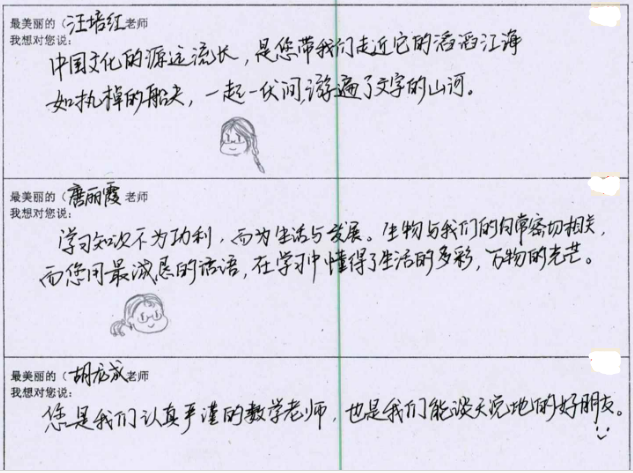 最美丽的（汪培红老师
我想对您说：
中国文化的源远流长，是您带我们走近它的滔滔江海
如执棹的船夫，一起一伏间，游遍了文字的山河。
最美丽的（唐丽霞老师
我想对您说：
学习知识不为功利，而为生活与发展。生物与我们的日常密切相关，
而您用最诚恳的话语，在学习中懂得了生活的多彩，万物的光芒。
最美丽的（胡龙成老师
我想对您说：
您是我们认真严谨的数学老师，也是我们能谈天说地的好朋友。